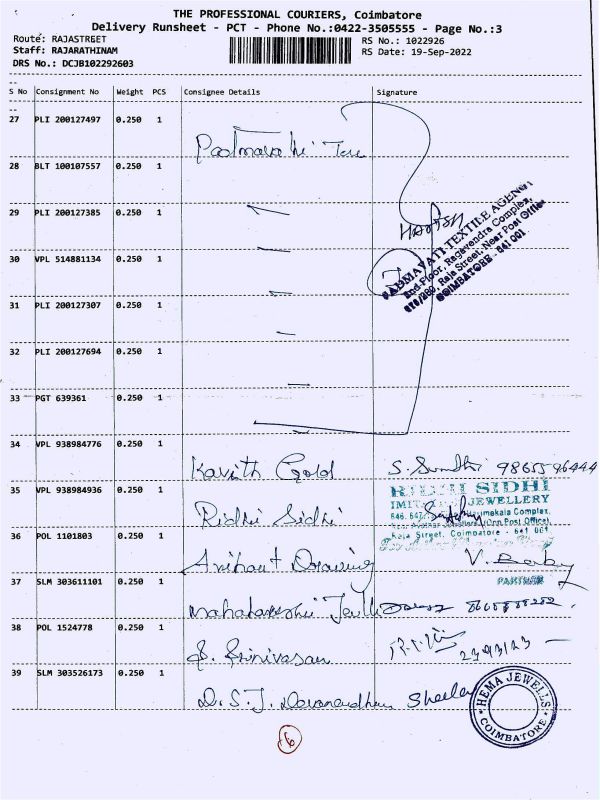 THE PROFESSIONAL COURIERS, Coimbatore
Delivery Runsheet - PCT - Phone No.:0422-3505555 - Page No.:3
Route: RAJASTREET
RS No.: 1022926
Staff: RAJARATHINAM
RS Date: 19-Sep-2022
DRS No.: DCJB102292603
S No Consignment No Weight PCS Consignee Details Signature
27 PLI 200127497 0.250 1
28 BLT 100107557 0.250 1
29 PLI 200127385 0.250 1
30 VPL 514881134 0.250 1
31 PLI 200127307 0.250 1
32 PLI 200127694 0.250 1
33 PGT 639361 0.250 1
PADMAVATI TEXTILE AGENCY
2nd-Floor, Ragavendra Complex,
Raja Street, Near Post Office
COIMBATORE - 641 001
34 VPL 938984776 0.250 1
Kavith Gold
35 VPL 938984936 0.250 1
Ridhi Sidhi
RIDHI SIDHI
JEWELLERY
Complex,
(Opp. Post Office)
Raja Street, Coimbatore - 641 001
36 POL 1101803 0.250 1
Arihant
V. Baby
PARTNER
37 SLM 303611101 0.250 1
38 POL 1524778 0.250 1
S. Srinivasan
39 SLM 303526173 0.250 1
D.S.J.
HEMA JEWELLS
COIMBATORE